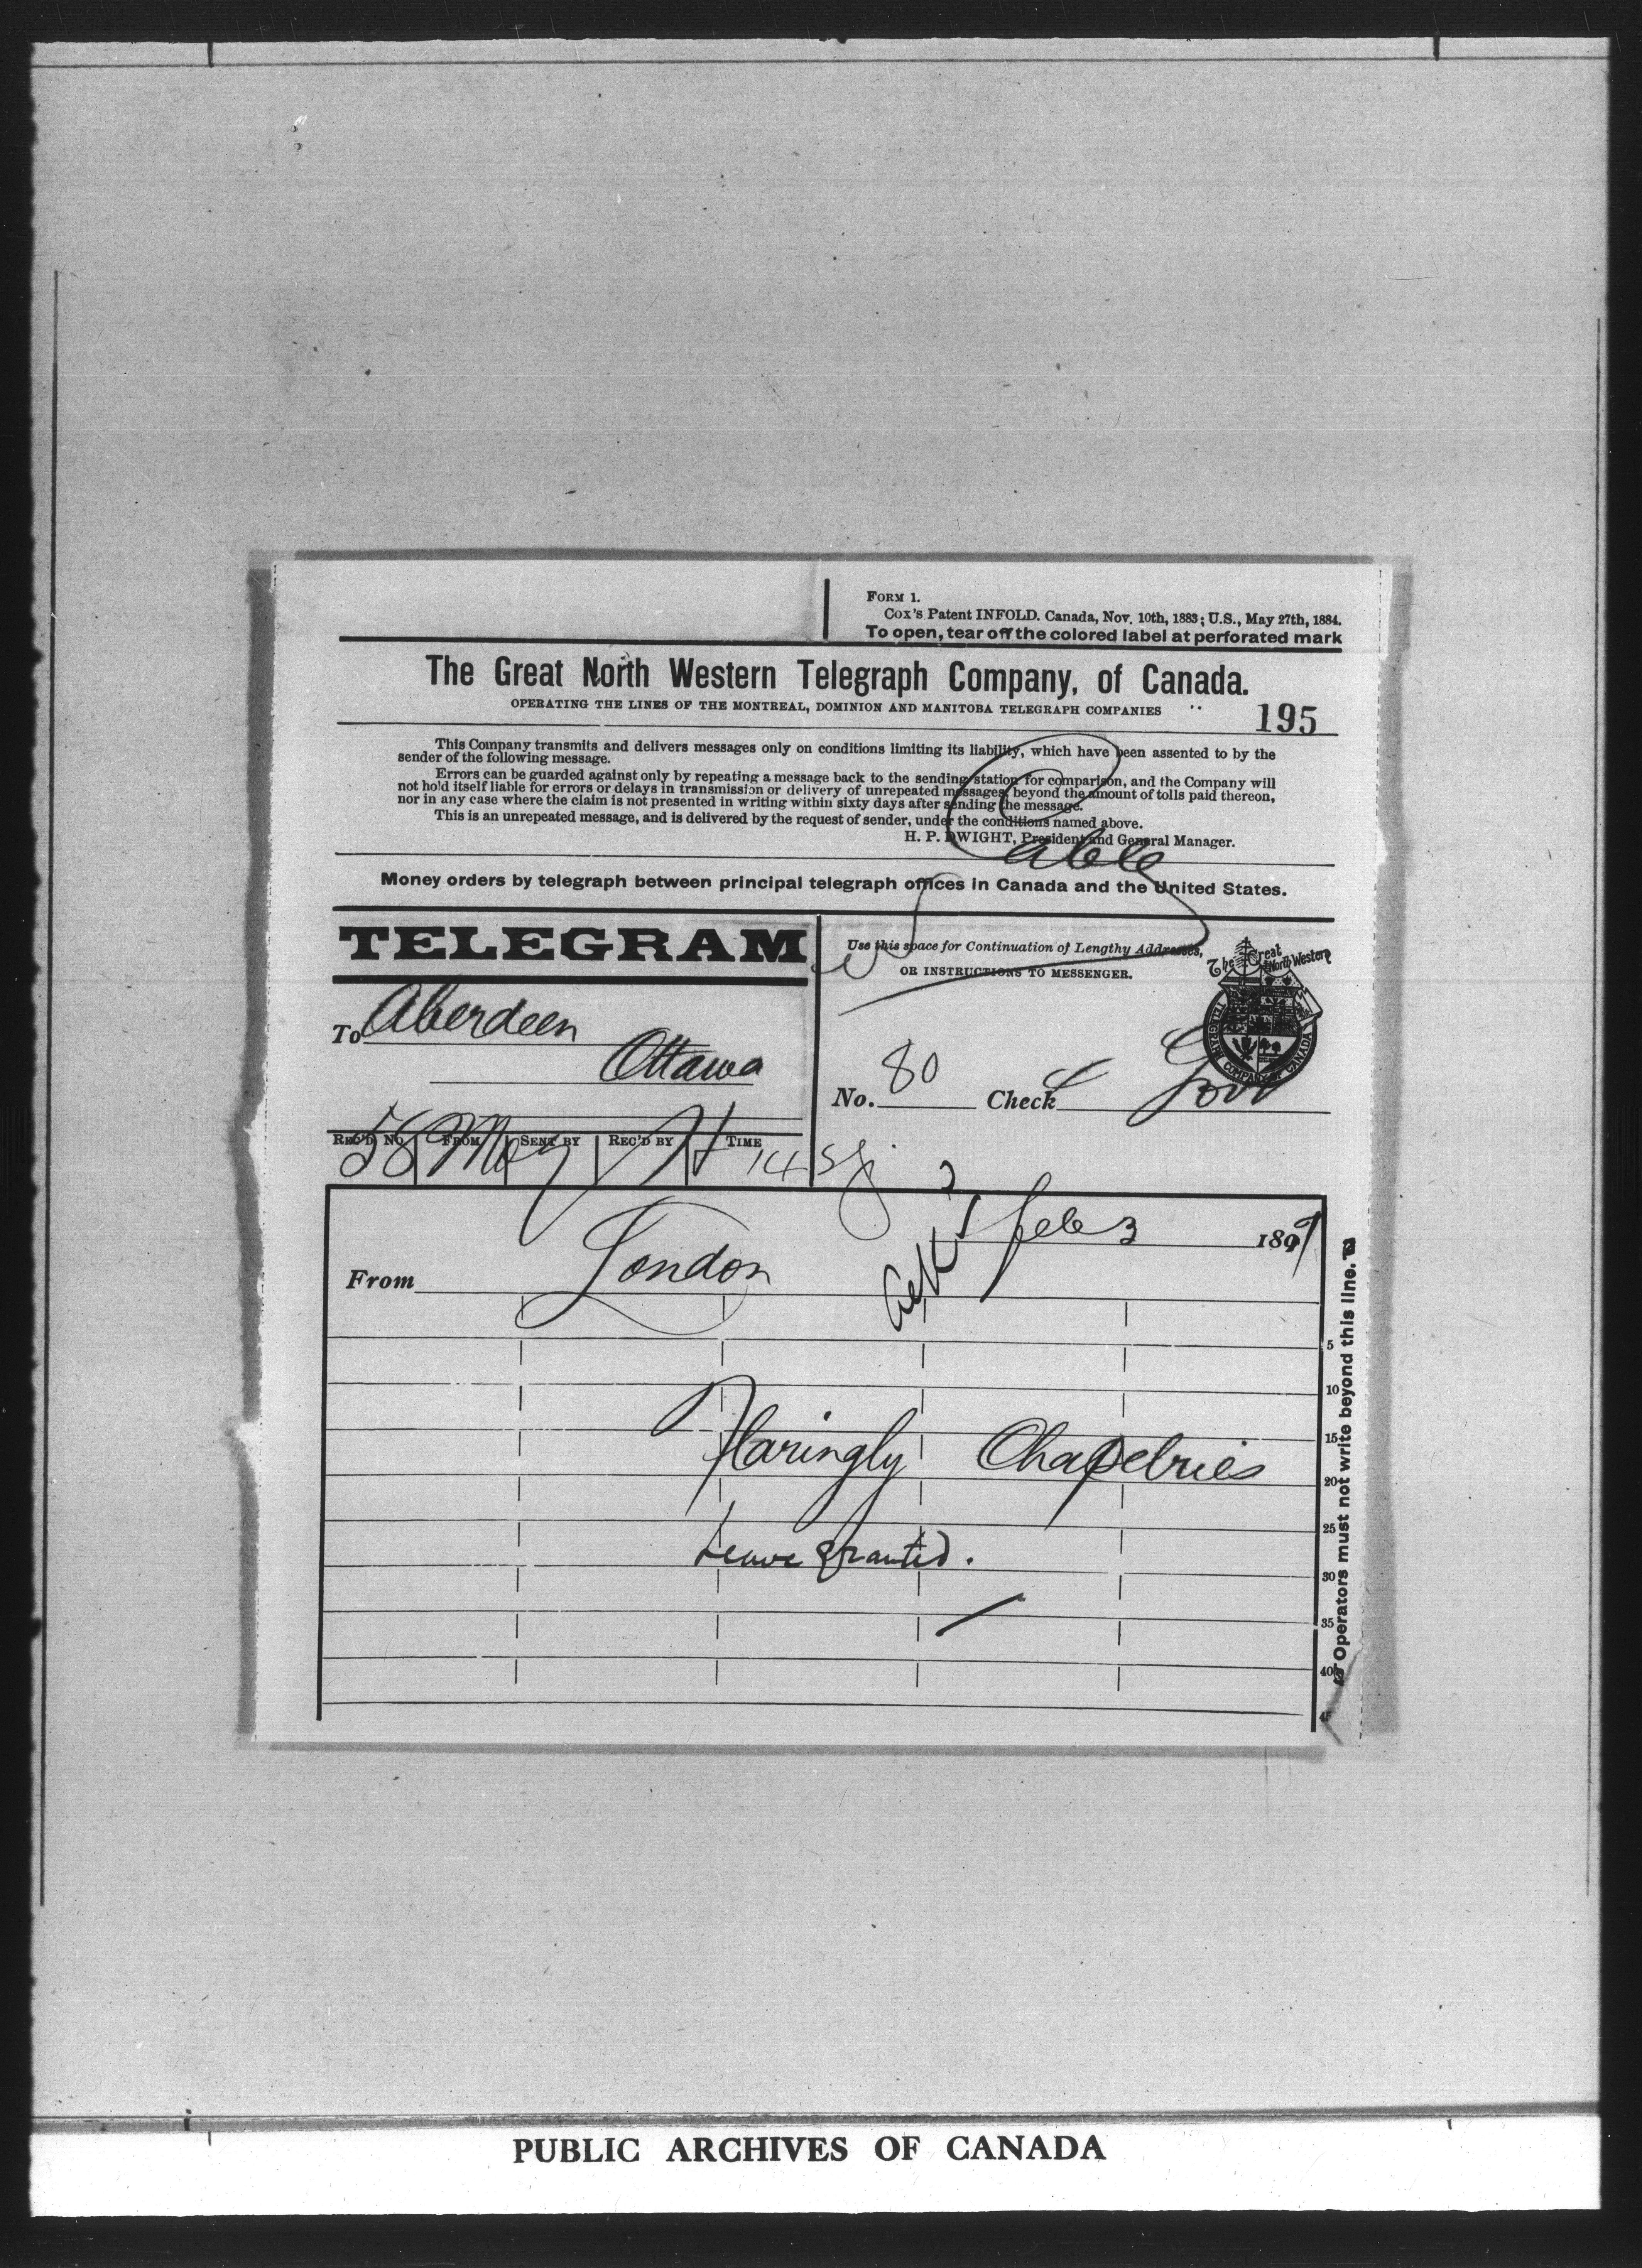 FORM 1.
Cox's Patent INFOLD. Canada, Nov. 10th, 1883; U.S., May 27th, 1884.
To open, tear off the colored label at perforated mark
The Great North Western Telegraph Company, of Canada.
OPERATING THE LINES OF THE MONTREAL, DOMINION AND MANITOBA TELEGRAPH COMPANIES
195
This Company transmits and delivers messages only on conditions limiting its liability, which have been assented to by the
sender of the following message.
Errors can be guarded against only by repeating a message back to the sending station for comparison, and the Company will
not hold itself liable for errors or delays in transmission or delivery of unrepeated messages, beyond the amount of tolls paid thereon,
nor in any case where the claim is not presented in writing within sixty days after sending the message.
This is an unrepeated message, and is delivered by the request of sender, under the conditions named above.
H. P. DWIGHT, President and General Manager.
Cable
Money orders by telegraph between principal telegraph offices in Canada and the United States.
TELEGRAM
Use this space for Continuation of Lengthy Addresses,
OR INSTRUCTIONS TO MESSENGER.
The Great North Western
TELEGRAPH COMPANY OF CANADA
To Aberdeen
Ottawa
No. 80 Check Govt
REC'D NO. FROM SENT BY REC'D BY TIME
58
Feb 3 1897
From London
Flaringly Chapelries
Leave granted.
5
10
15
20
25
30
35
40
45
Operators must not write beyond this line.
PUBLIC ARCHIVES OF CANADA